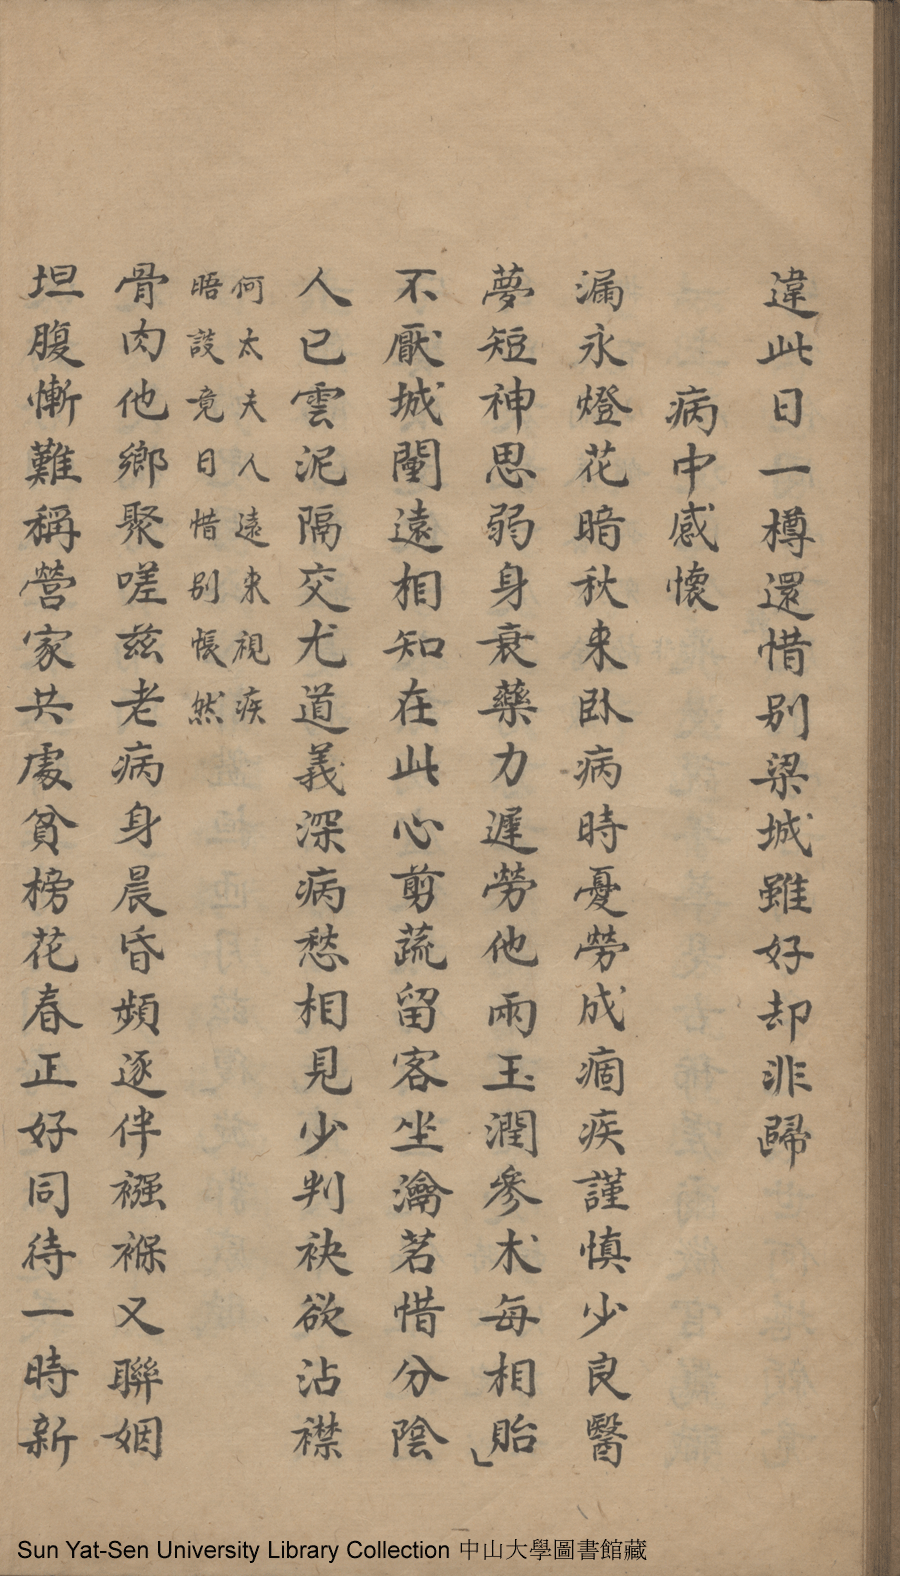 違此日一樽還惜別梁城雖好却非歸
病中感懷
漏永燈花暗秋来卧病時憂勞成痼疾謹慎少良醫
夢短神思弱身衰藥力遲勞他兩玉潤參朮每相貽
不厭城闉遠相知在此心剪蔬留客坐瀹茗惜分陰
人已雲泥隔交尤道義深病愁相見少判袂欲沾襟
何太夫人遠来視疾
晤談竟日惜别悵然
骨肉他鄉聚嗟兹老病身晨昏頻逐伴襁褓又聯姻
坦腹慚難稱營家共慮貧榜花春正好同待一時新
Sun Yat-Sen University Library Collection 中山大學圖書館藏